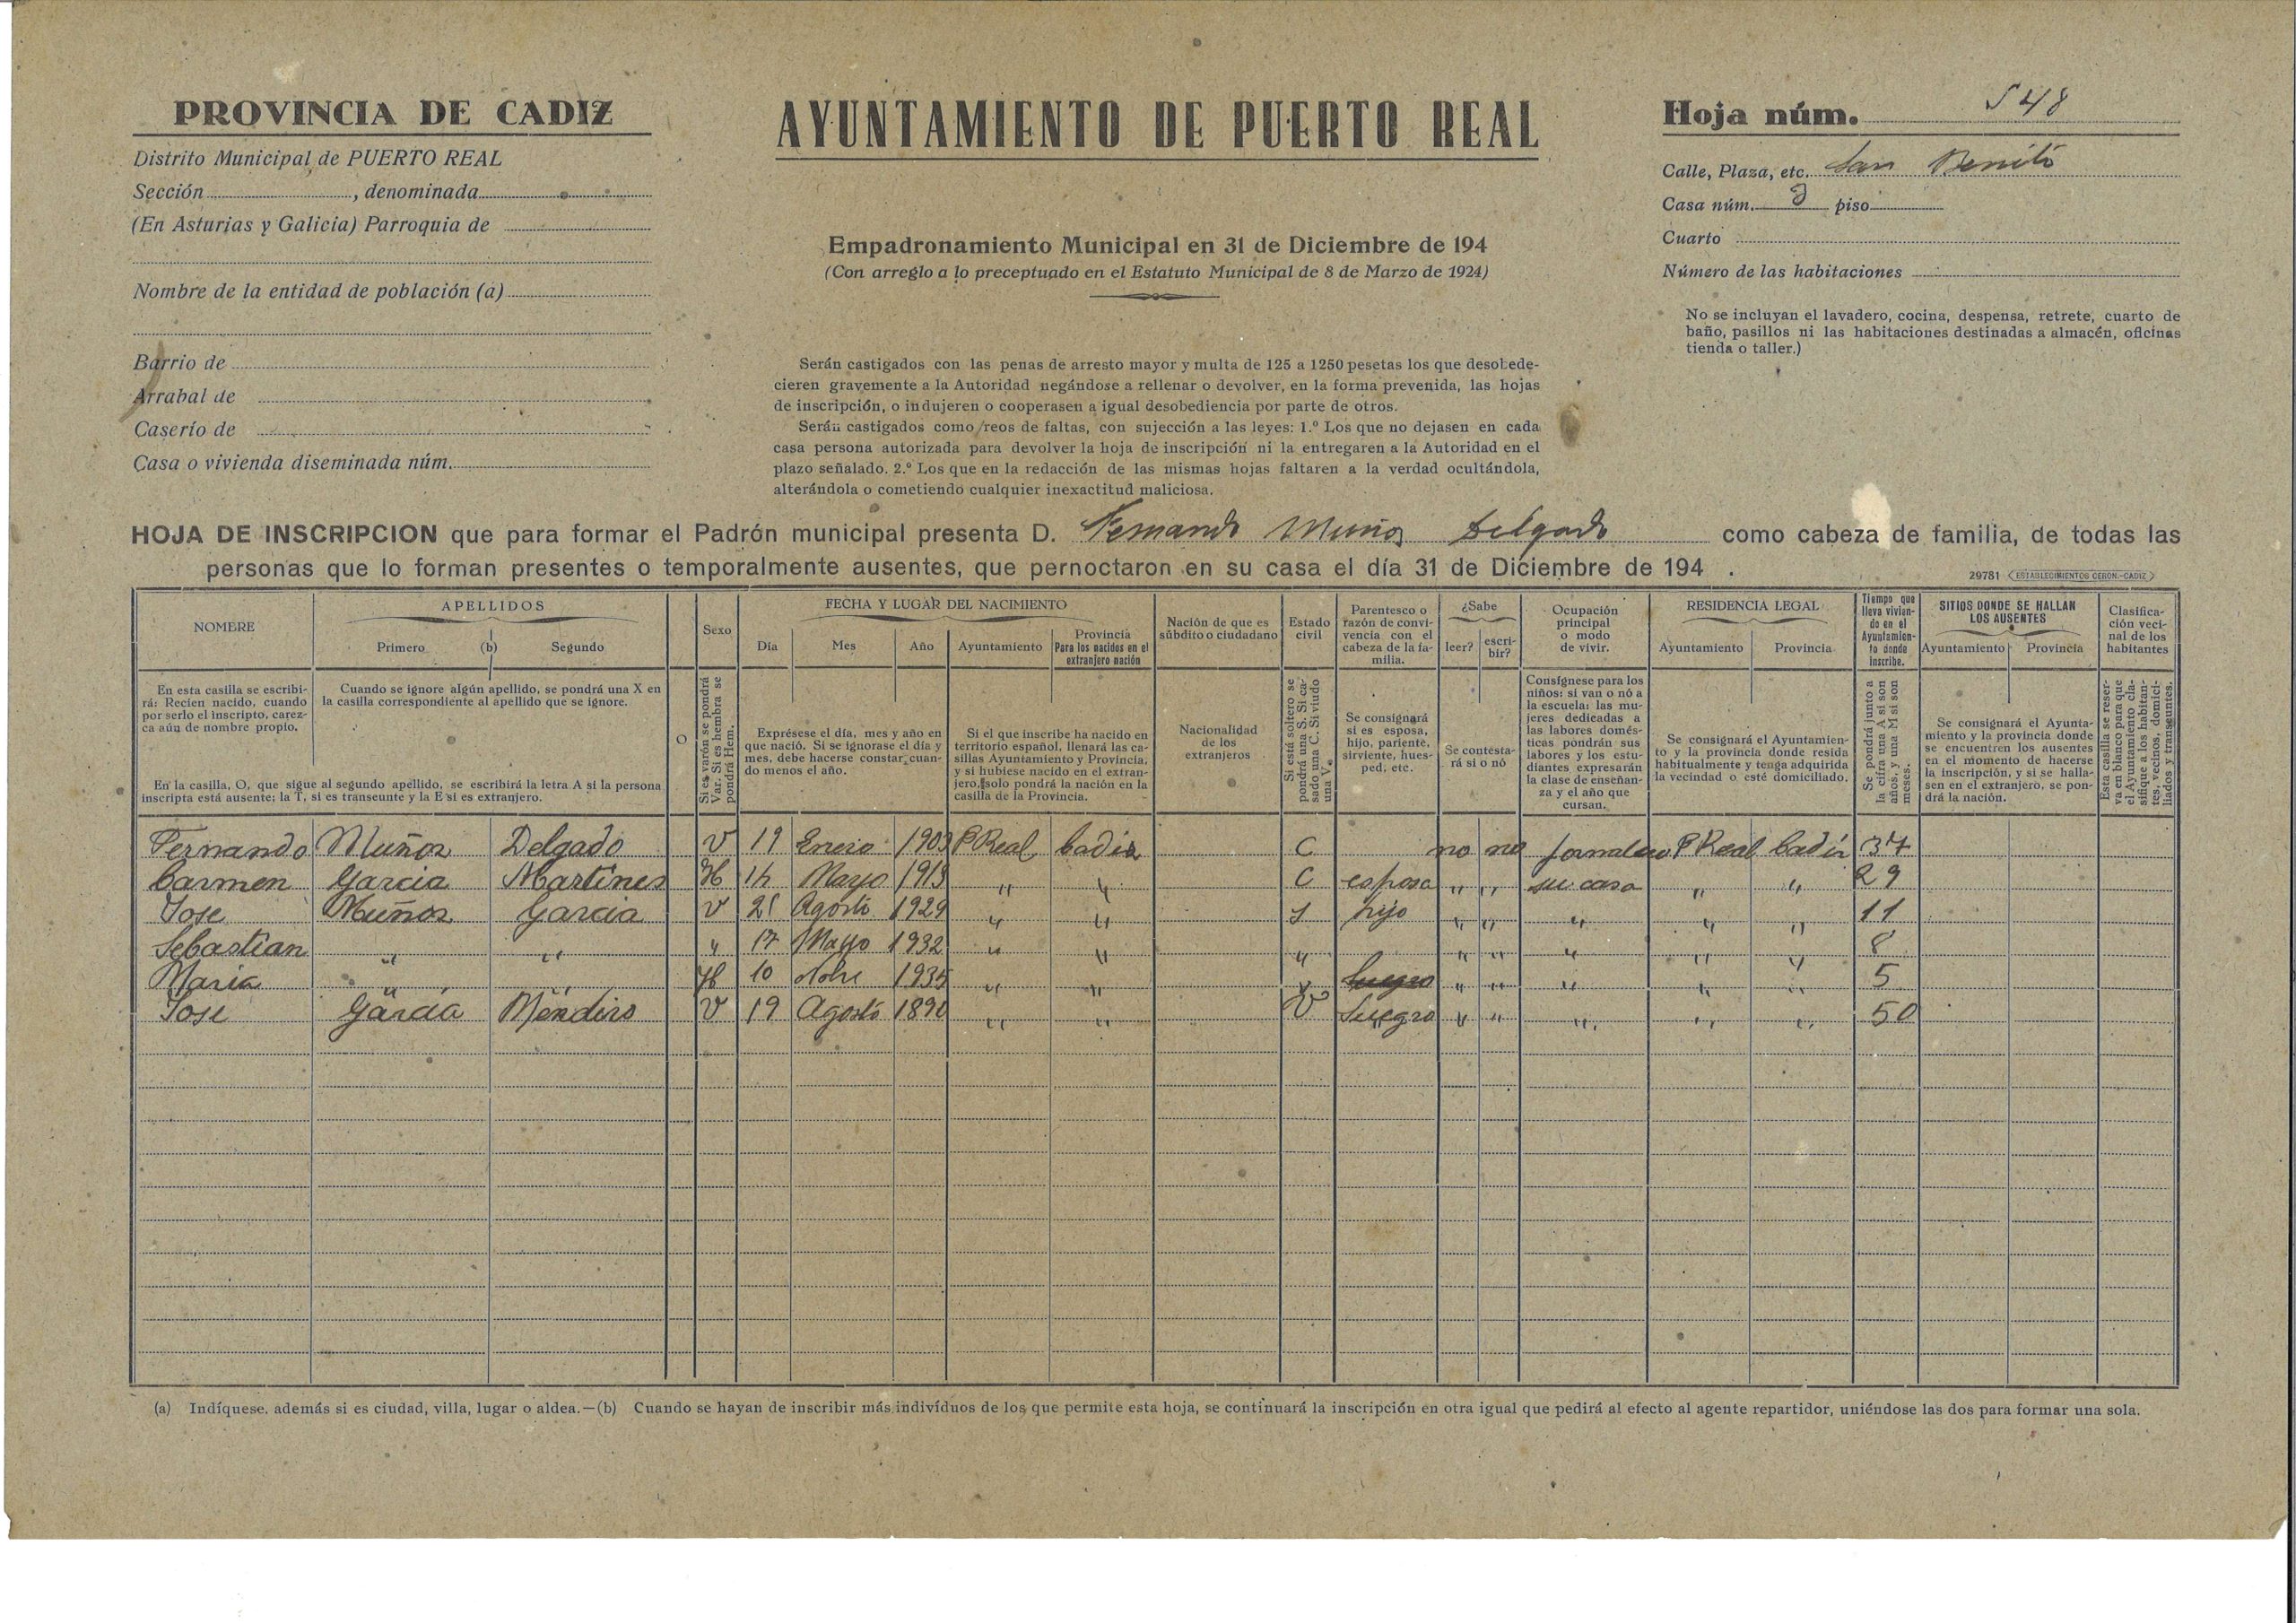 PROVINCIA DE CADIZ
Distrito Municipal de PUERTO REAL
Sección , denominada
(En Asturias y Galicia) Parroquia de
Nombre de la entidad de población (a)
Barrio de
Arrabal de
Caserío de
Casa o vivienda diseminada núm.
AYUNTAMIENTO DE PUERTO REAL
Empadronamiento Municipal en 31 de Diciembre de 194
(Con arreglo a lo preceptuado en el Estatuto Municipal de 8 de Marzo de 1924)
Serán castigados con las penas de arresto mayor y multa de 125 a 1250 pesetas los que desobede-
cieren gravemente a la Autoridad negándose a rellenar o devolver, en la forma prevenida, las hojas
de inscripción, o indujeren o cooperasen a igual desobediencia por parte de otros.
Serán castigados como reos de faltas, con sujección a las leyes: 1.º Los que no dejasen en cada
casa persona autorizada para devolver la hoja de inscripción ni la entregaren a la Autoridad en el
plazo señalado. 2.º Los que en la redacción de las mismas hojas faltaren a la verdad ocultándola,
alterándola o cometiendo cualquier inexactitud maliciosa.
Hoja núm. 548
Calle, Plaza, etc. San Benito
Casa núm. piso
Cuarto
Número de las habitaciones
No se incluyan el lavadero, cocina, despensa, retrete, cuarto de
baño, pasillos ni las habitaciones destinadas a almacén, oficinas
tienda o taller.)
HOJA DE INSCRIPCION que para formar el Padrón municipal presenta D. Fernando Muñoz Delgado como cabeza de familia, de todas las
personas que lo forman presentes o temporalmente ausentes, que pernoctaron en su casa el día 31 de Diciembre de 194 .
29781 (ESTABLECIMIENTOS CERON.-CADIZ)
NOMBRE
APELLIDOS
Primero (b) Segundo
Sexo
FECHA Y LUGAR DEL NACIMIENTO
Día Mes Año Ayuntamiento
Provincia
Para los nacidos en el
extranjero nación
Nación de que es
súbdito o ciudadano
Estado
civil
Parentesco o
razón de convi-
vencia con el
cabeza de la fa-
milia.
¿Sabe
leer? escri-
bir?
Ocupación
principal
o modo
de vivir.
RESIDENCIA LEGAL
Ayuntamiento Provincia
Tiempo que
lleva vivien-
do en el
Ayuntamien-
to donde
inscribe.
SITIOS DONDE SE HALLAN
LOS AUSENTES
Ayuntamiento Provincia
Clasifica-
ción veci-
nal de los
habitantes
En esta casilla se escribi-
rá: Recien nacido, cuando
por serlo el inscripto, carez-
ca aún de nombre propio.
Cuando se ignore algún apellido, se pondrá una X en
la casilla correspondiente al apellido que se ignore.
En la casilla, O, que sigue al segundo apellido, se escribirá la letra A si la persona
inscripta está ausente; la T, si es transeunte y la E si es extranjero.
O
Si es varón se pondrá
Var. Si es hembra se
pondrá Hem.
Exprésese el día, mes y año en
que nació. Si se ignorase el día y
mes, debe hacerse constar cuan-
do menos el año.
Si el que inscribe ha nacido en
territorio español, llenará las ca-
sillas Ayuntamiento y Provincia,
y si hubiese nacido en el extran-
jero, solo pondrá la nación en la
casilla de la Provincia.
Nacionalidad
de los
extranjeros
Si está soltero se
pondrá una S. Si ca-
sado una C. Si viudo
una V.
Se consignará
si es esposa,
hijo, pariente,
sirviente, hues-
ped, etc.
Se contesta-
rá si o nó
Consígnese para los
niños: si van o nó a
la escuela: las mu-
jeres dedicadas a
las labores domés-
ticas pondrán sus
labores y los estu-
diantes expresarán
la clase de enseñan-
za y el año que
cursan.
Se consignará el Ayuntamien-
to y la provincia donde resida
habitualmente y tenga adquirida
la vecindad o esté domiciliado.
Se pondrá junto a
la cifra una A si son
años, y una M si son
meses.
Se consignará el Ayunta-
miento y la provincia donde
se encuentren los ausentes
en el momento de hacerse
la inscripción, y si se halla-
sen en el extranjero, se pon-
drá la nación.
Esta casilla se reser-
va en blanco para que
el Ayuntamiento cla-
sifique a los habitan-
tes, vecinos, domici-
liados y transeuntes.
Fernando Muñoz Delgado V 19 Enero 1903 P Real Cadiz C no no jornalero P Real Cadiz 37
Carmen Garcia Martines H 14 Mayo 1913 " " C esposa " " su casa " " 29
Jose Muñoz Garcia V 21 Agosto 1929 " " S hijo " " " " " 11
Sebastian " " " 17 Mayo 1932 " " " " " " " " 8
Maria " " H 10 otbre 1935 " " " " " " " " 5
Jose Garcia V 19 Agosto 1890 " " V Suegro " " " " " 50
(a) Indíquese. además si es ciudad, villa, lugar o aldea.—(b) Cuando se hayan de inscribir más individuos de los que permite esta hoja, se continuará la inscripción en otra igual que pedirá al efecto al agente repartidor, uniéndose las dos para formar una sola.